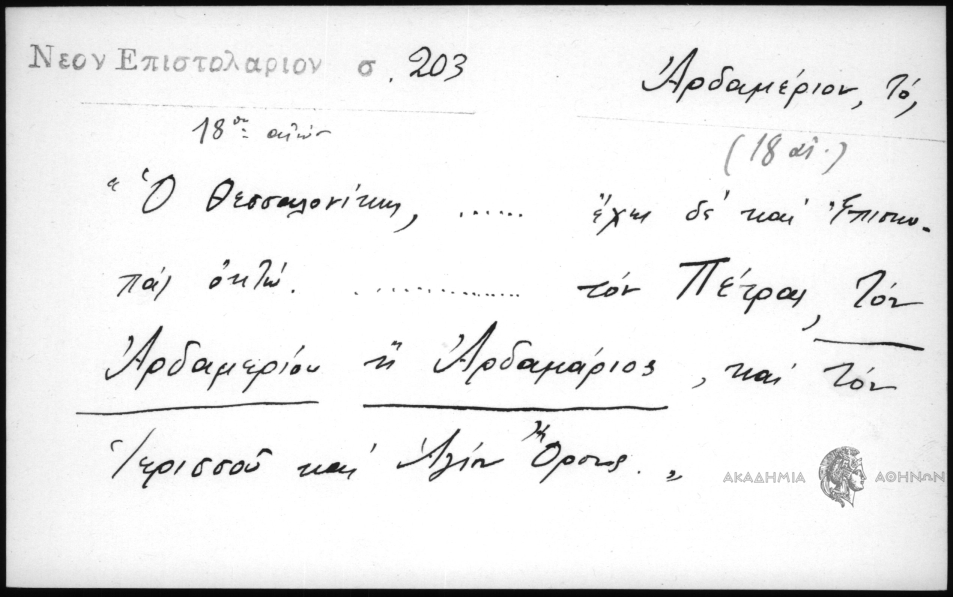 Νεον Επιστολαριον σ. 203
Ἀρδαμέριον, τό,
18ος αἰών
(18 αἰ.)
"Ὁ Θεσσαλονίκης, ...... ἔχει δέ καί Ἐπισκο-
πάς ὀκτώ. ............... τόν Πέτρας, τόν
Ἀρδαμερίου ἤ Ἀρδαμάριος, καί τόν
Ἱερισσοῦ καί Ἁγίου Ὄρους."
ΑΚΑΔΗΜΙΑ ΑΘΗΝΩΝ